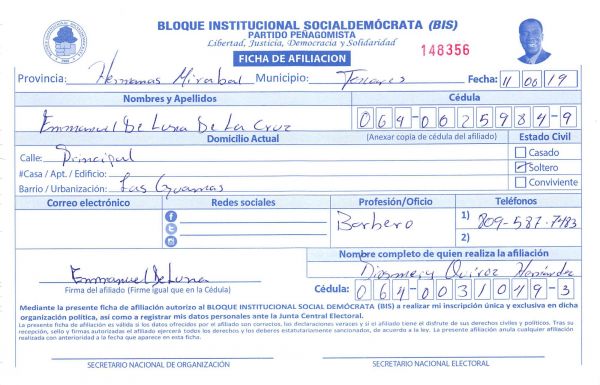 BLOQUE INSTITUCIONAL SOCIALDEMÓCRATA (BIS)
PARTIDO PEÑAGOMISTA
Libertad, Justicia, Democracia y Solidaridad
148356
FICHA DE AFILIACION
Provincia: Hermanas Mirabal Municipio: Tenares Fecha: 11 06 19
Nombres y Apellidos Cédula
Emmanuel De Luna De La Cruz 064-0025984-9
Domicilio Actual (Anexar copia de cédula del afiliado) Estado Civil
Calle: Principal Casado
#Casa / Apt. / Edificio: Soltero
Barrio / Urbanización: Las Guamas Conviviente
Correo electrónico Redes sociales Profesión/Oficio Teléfonos
Barbero 1) 809-587-7483
2)
Nombre completo de quien realiza la afiliación
Emmanuel De Luna Quiroz Hernández
Firma del afiliado (Firme igual que en la Cédula) Cédula: 064-0031049-3
Mediante la presente ficha de afiliación autorizo al BLOQUE INSTITUCIONAL SOCIAL DEMÓCRATA (BIS) a realizar mi inscripción única y exclusiva en dicha
organización política, así como a registrar mis datos personales ante la Junta Central Electoral.
La presente ficha de afiliación es válida si los datos ofrecidos por el afiliado son correctos, las declaraciones veraces y si el afiliado tiene el disfrute de sus derechos civiles y políticos. Tras su
recepción, sello y firmas autorizadas el afiliado ejercerá todos los derechos y los deberes estatutariamente sancionados, de acuerdo a la ley. La presente afiliación anula cualquier afiliación
realizada con anterioridad a la fecha que aparece en esta ficha.
SECRETARIO NACIONAL DE ORGANIZACIÓN SECRETARIO NACIONAL ELECTORAL